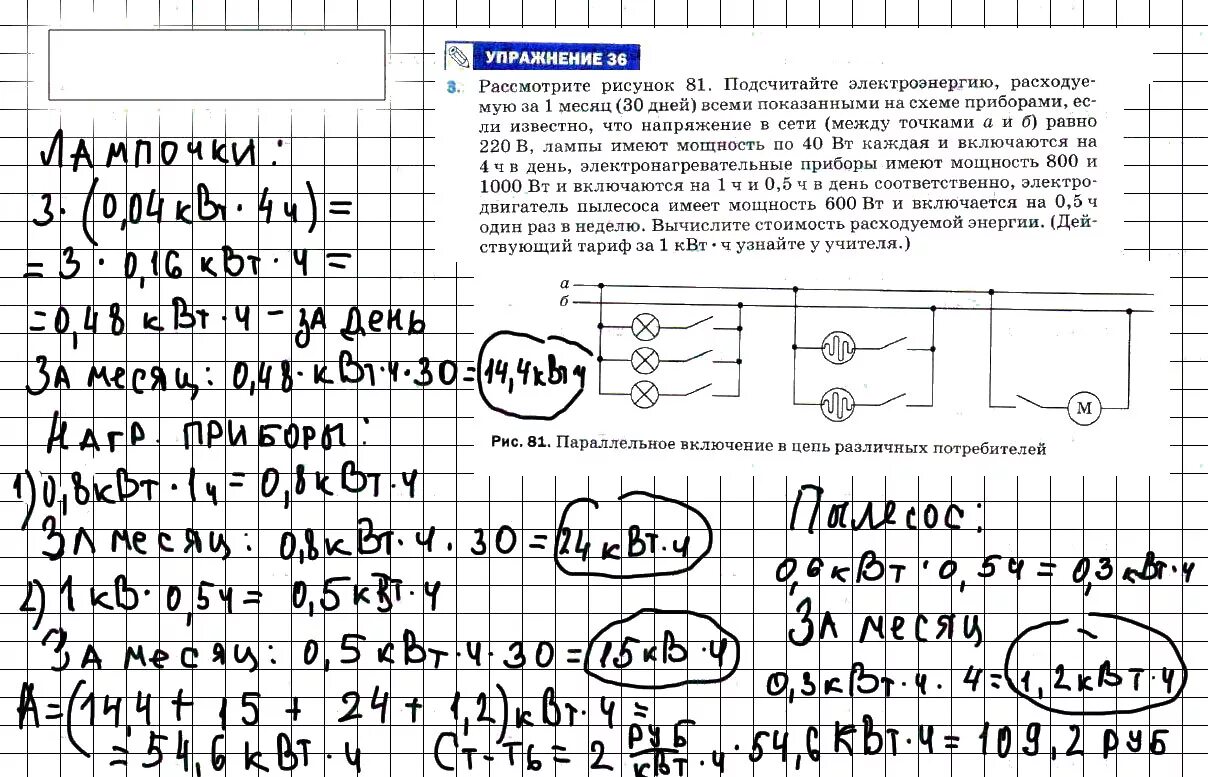 УПРАЖНЕНИЕ 36
3. Рассмотрите рисунок 81. Подсчитайте электроэнергию, расходуе-
мую за 1 месяц (30 дней) всеми показанными на схеме приборами, ес-
ли известно, что напряжение в сети (между точками а и б) равно
220 В, лампы имеют мощность по 40 Вт каждая и включаются на
4 ч в день, электронагревательные приборы имеют мощность 800 и
1000 Вт и включаются на 1 ч и 0,5 ч в день соответственно, электро-
двигатель пылесоса имеет мощность 600 Вт и включается на 0,5 ч
один раз в неделю. Вычислите стоимость расходуемой энергии. (Дей-
ствующий тариф за 1 кВт · ч узнайте у учителя.)
а
б
М
Рис. 81. Параллельное включение в цепь различных потребителей
ЛАМПОЧКИ:
3·(0,04 кВт·4ч)=
=3·0,16 кВт·ч=
=0,48 кВт·ч – ЗА ДЕНЬ
ЗА месяц: 0,48·кВт·ч·30=14,4кВтч
НАГР. ПРИБОРЫ:
1) 0,8кВт·1ч=0,8кВт·ч
ЗА месяц: 0,8кВт·ч·30=24кВт·ч
2) 1кВ·0,5ч=0,5кВт·ч
ЗА месяц: 0,5кВт·ч·30=15кВ·ч
Пылесос:
0,6кВт·0,5ч=0,3кВт·ч
ЗА месяц
0,3кВт·ч·4=1,2кВт·ч
А=(14,4+15+24+1,2)кВт·ч=
=54,6кВт·ч Ст-ть=2 РУБ/кВт·ч·54,6кВт·ч=109,2 РУБ